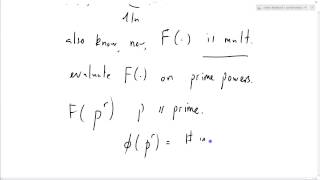 d|n
also know, now, F(·) is mult.
evaluate F(·) on prime powers.
F(p^r) p is prime.
φ(p^r) = # in